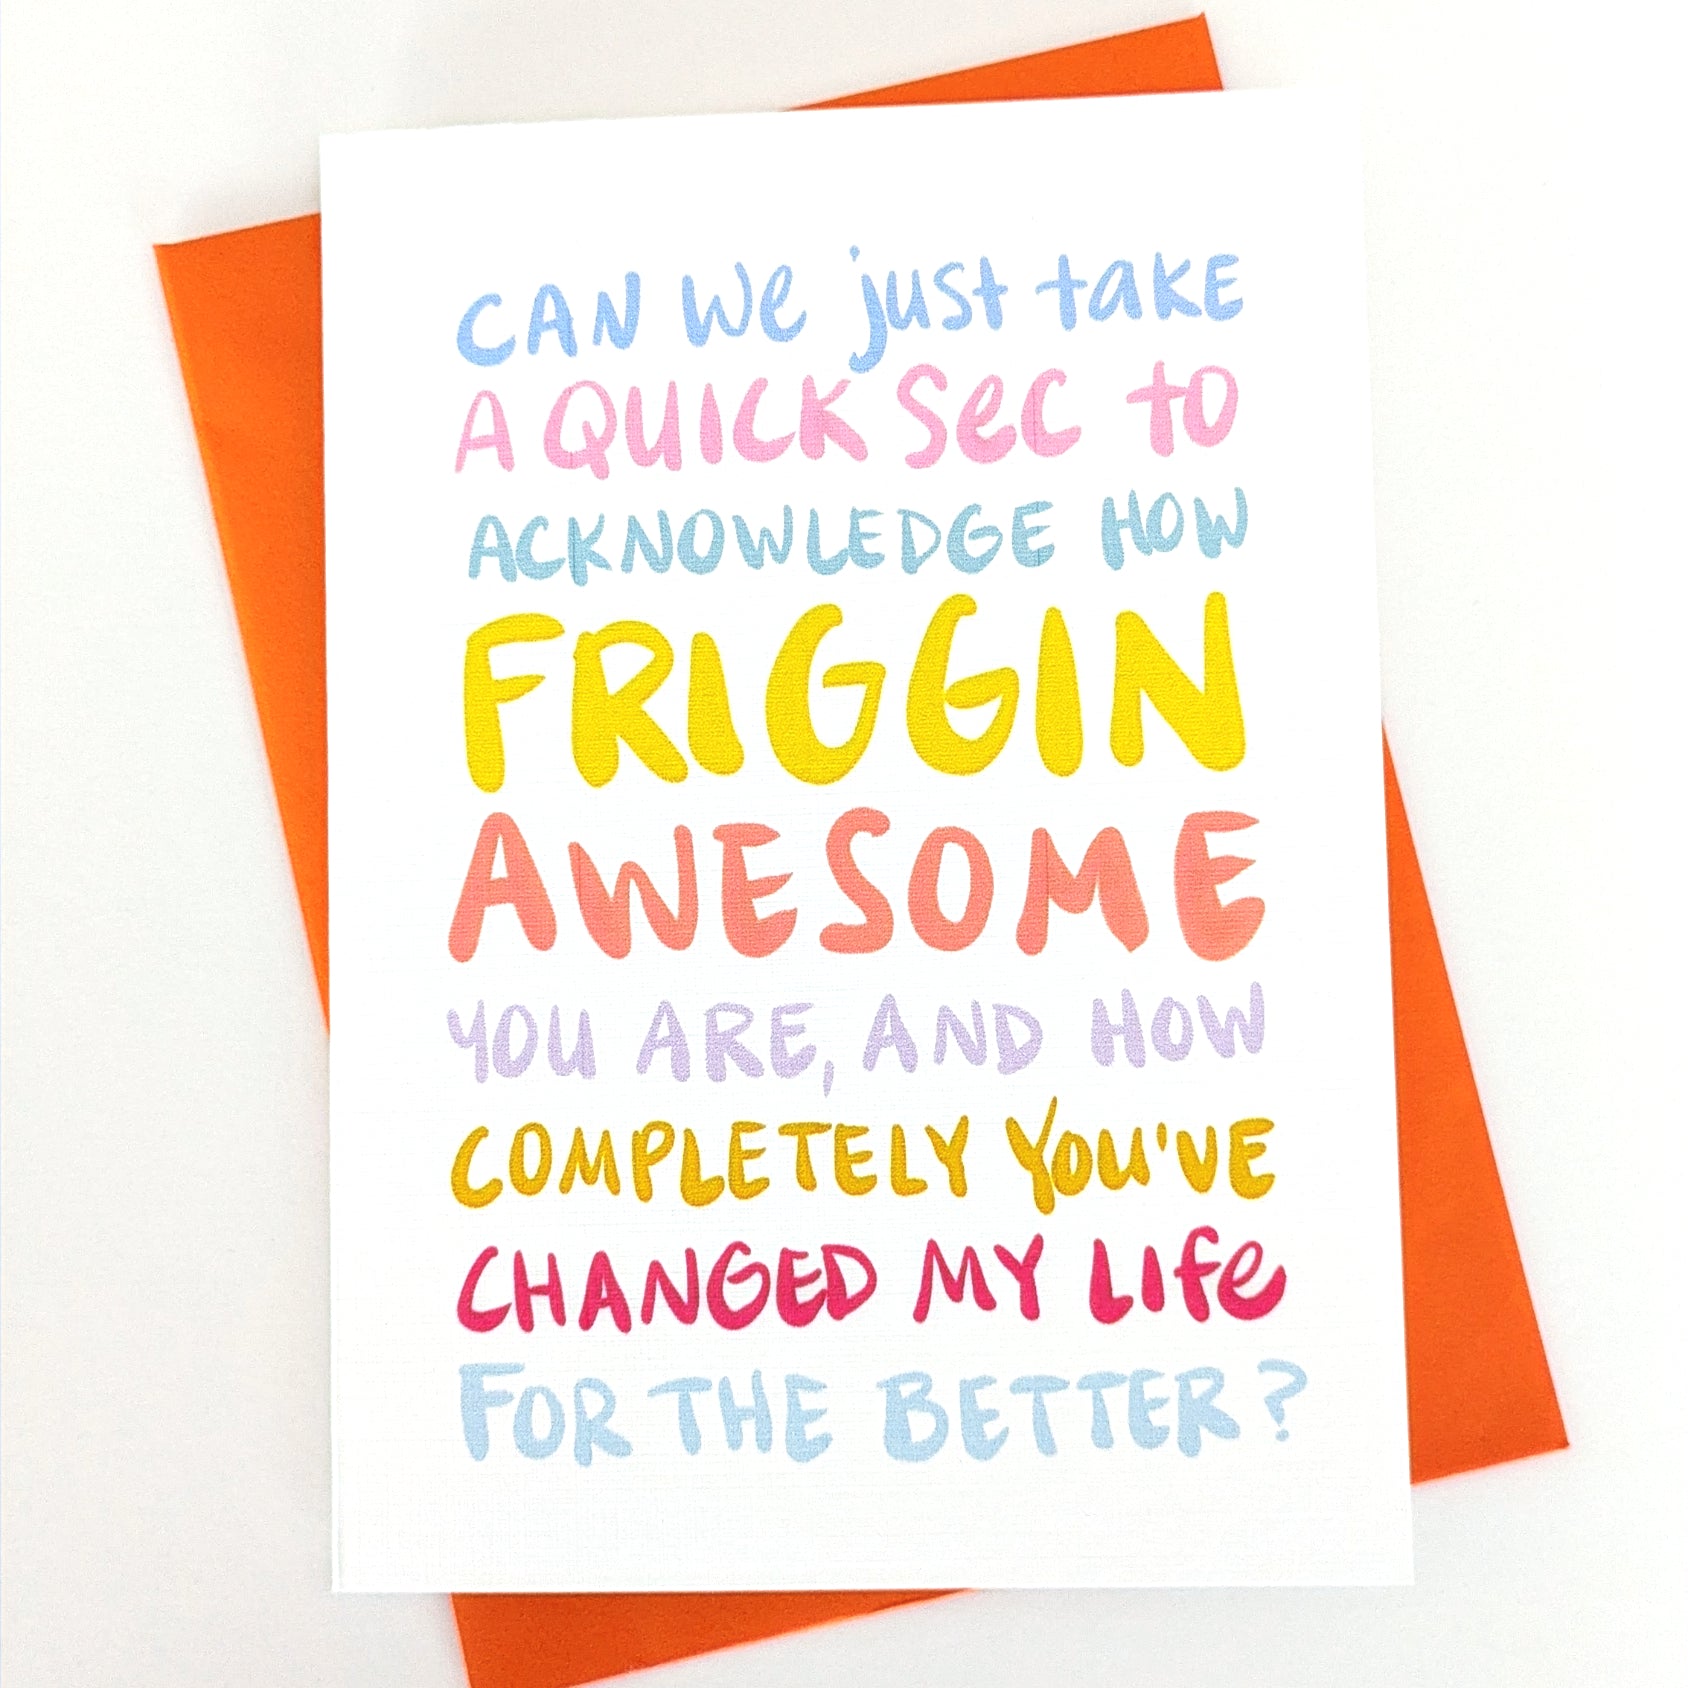 CAN We just taKE
A QUICK Sec to
ACKNOWLEDGE HOW
FRIGGIN
AWESOME
YOU ARE, AND HOW
COMPLETELY YOU'VE
CHANGED MY LIfe
FOR THE BETTER?